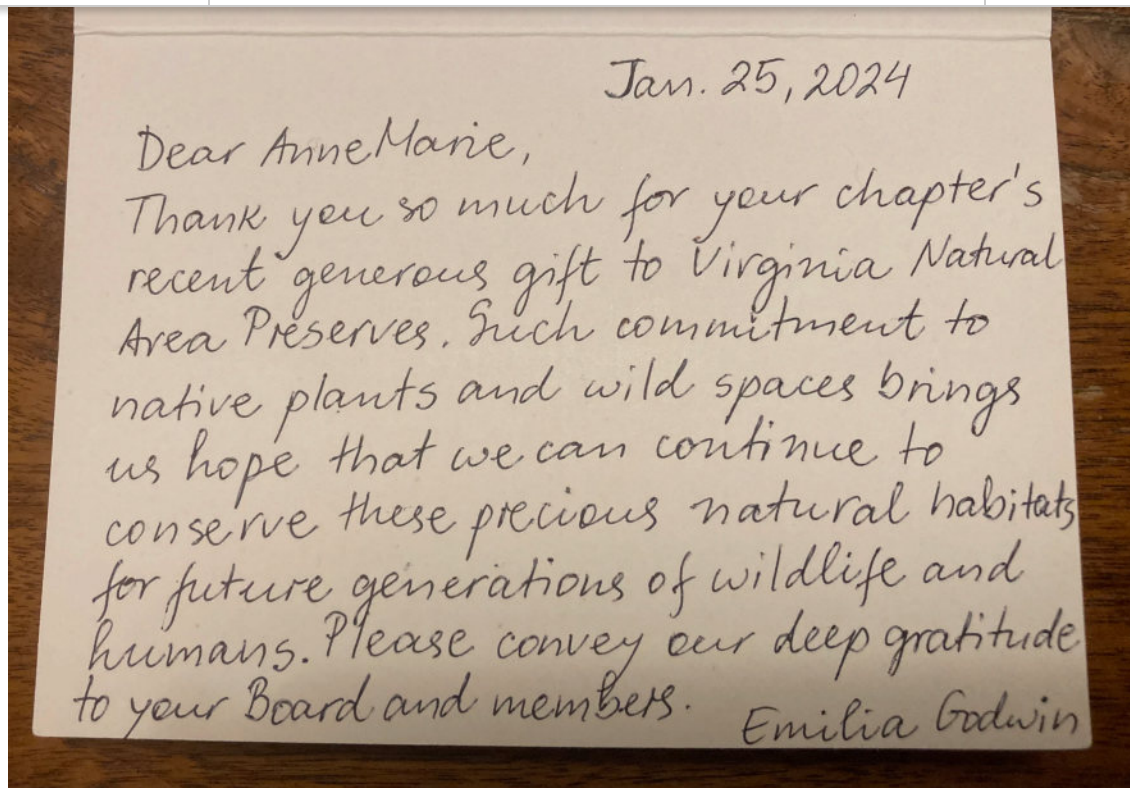 Jan. 25, 2024
Dear AnneMarie,
Thank you so much for your chapter's
recent generous gift to Virginia Natural
Area Preserves. Such commitment to
native plants and wild spaces brings
us hope that we can continue to
conserve these precious natural habitats
for future generations of wildlife and
humans. Please convey our deep gratitude
to your Board and members.
Emilia Godwin